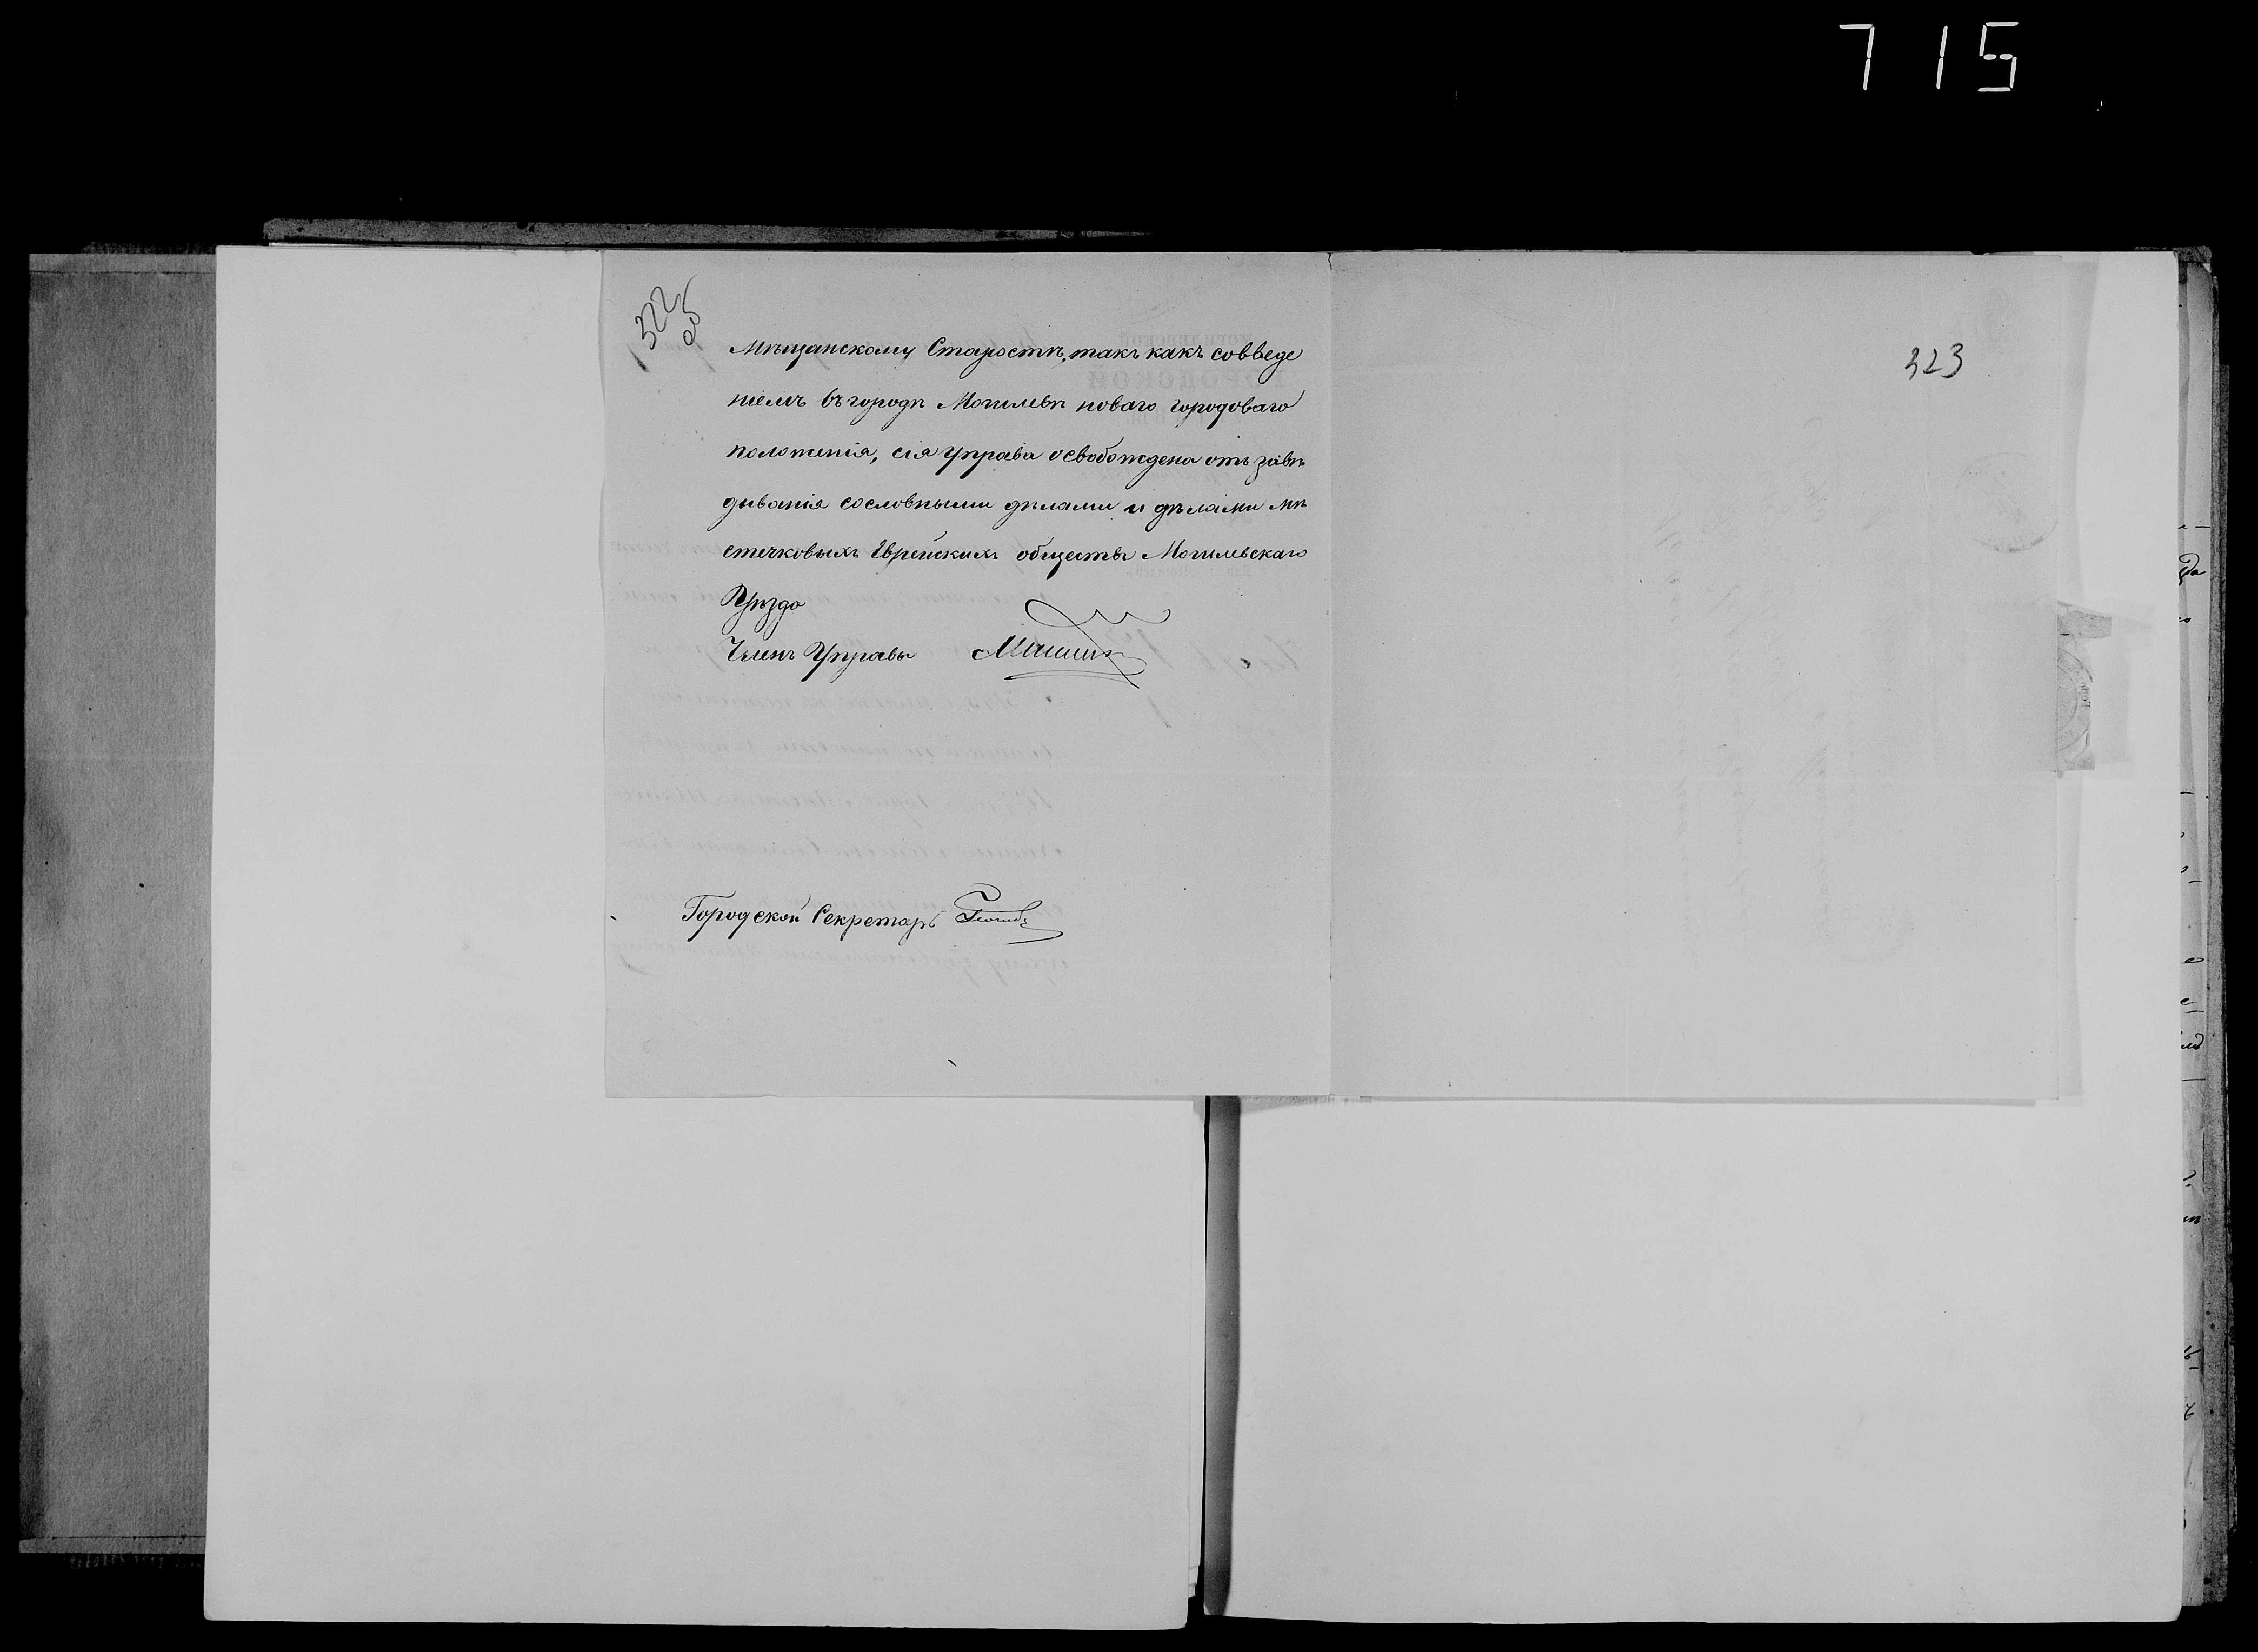 715
322
об
323
Мѣщанскому Старостѣ, такъ какъ совведе
ніемъ въ городѣ Могилевѣ новаго городоваго
положенія, сія Управа освобождена отъ завѣ
дыванія сословными дѣлами и дѣлами мѣ
стечковыхъ Еврейскихъ обществъ Могилевскаго
Уѣзда
Членъ Управы
Городской Секретарь